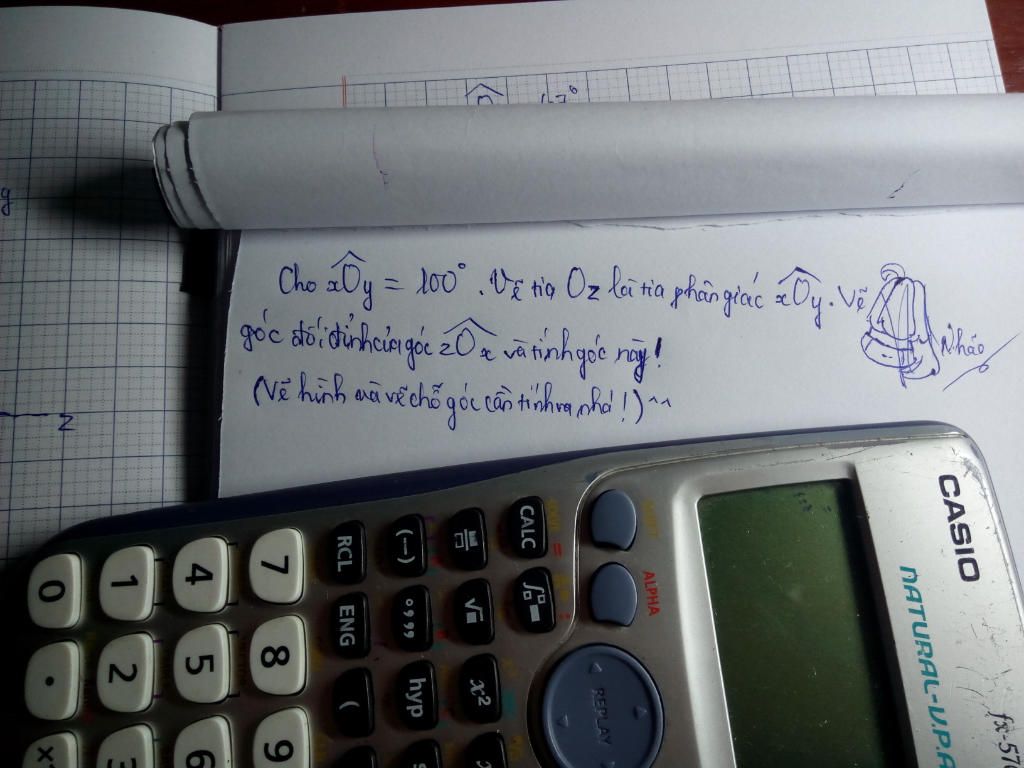 y
Cho xOy = 100°. Vẽ tia Oz là tia phân giác xOy. Vẽ
góc đối đỉnh của góc zOx và tính góc này!
(Vẽ hình và vẽ chỗ góc cần tính ra nhá!)^^
Nháo
z
CASIO
NATURAL-V.P.A
fx-570
SHIFT
ALPHA
REPLAY
CALC
RCL
ENG
(−)
°’”
hyp
√
x²
(
7
8
9
4
5
6
1
2
3
0
.